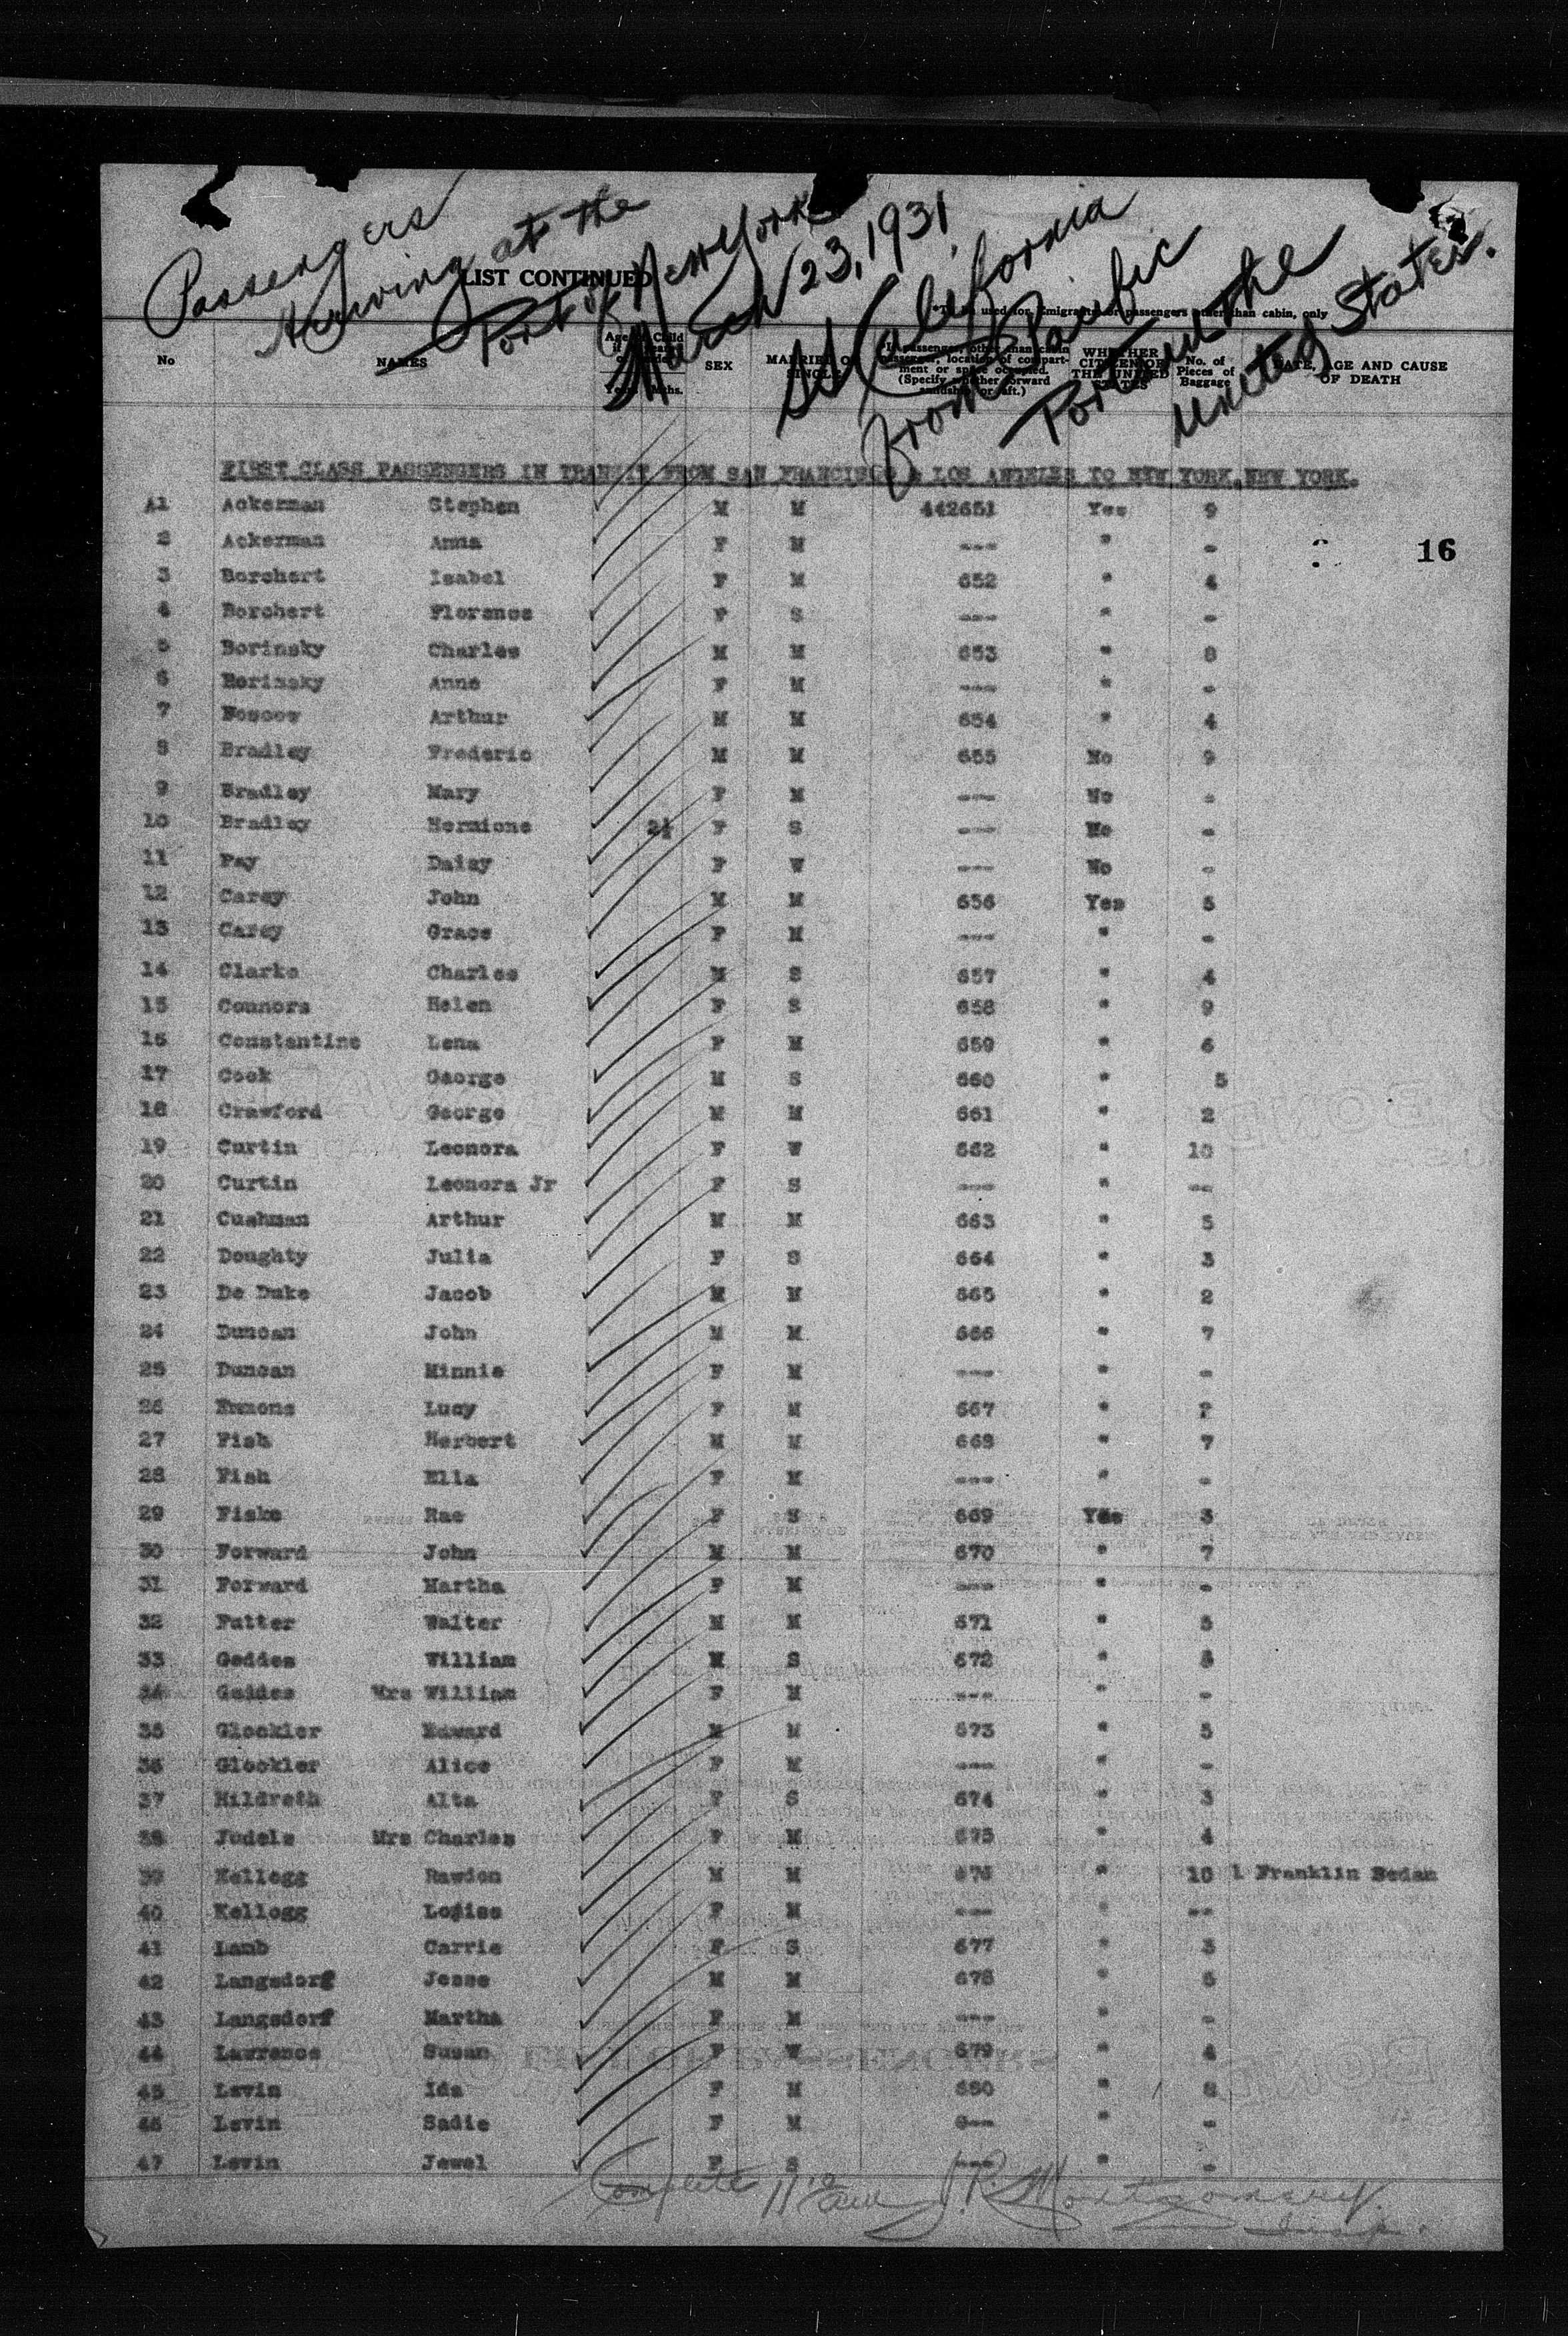 Passengers
Arriving at the
Port of New York
March 23, 1931
SS California
from Pacific
Ports in the
United States.
LIST CONTINUED
used for Emigrants or passengers other than cabin, only
No NAMES SEX MARRIED OR SINGLE If passenger, other than cabin passenger, location of compartment or space occupied. (Specify whether forward amidships or aft.) WHETHER CITIZEN OF THE UNITED STATES No. of Pieces of Baggage DATE, AGE AND CAUSE OF DEATH
FIRST CLASS PASSENGERS IN TRANSIT FROM SAN FRANCISCO & LOS ANGELES TO NEW YORK, NEW YORK.
A1 Ackerman Stephen M M 442651 Yes 9
2 Ackerman Anna F M --- " -
16
3 Borchert Isabel F M 652 " 4
4 Borchert Florence F S --- " -
5 Borinsky Charles M M 653 " 8
6 Borinsky Anne F M --- " -
7 Boscow Arthur M M 654 " 4
8 Bradley Frederic M M 655 No 9
9 Bradley Mary F M --- No -
10 Bradley Hermione 2½ F S --- No -
11 Fay Daisy F W --- No -
12 Carey John M M 656 Yes 5
13 Carey Grace F M --- " -
14 Clarke Charles M S 657 " 4
15 Connors Helen F S 658 " 9
16 Constantine Lena F M 659 " 6
17 Cook George M S 660 " 5
18 Crawford George M M 661 " 2
19 Curtin Leonora F W 662 " 10
20 Curtin Leonora Jr F S --- " --
21 Cushman Arthur M M 663 " 5
22 Doughty Julia F S 664 " 3
23 De Duke Jacob M M 665 " 2
24 Duncan John M M 666 " 7
25 Duncan Minnie F M --- " -
26 Emmons Lucy F M 667 "
27 Fish Herbert M M 668 " 7
28 Fish Ella F M --- " -
29 Fiske Rae F S 669 Yes 3
30 Forward John M M 670 " 7
31 Forward Martha F M --- " -
32 Futter Walter M M 671 " 5
33 Geddes William M S 672 "
34 Geddes Mrs William F M --- " -
35 Glockler Edward M M 673 " 5
36 Glockler Alice F M --- " -
37 Hildreth Alta F S 674 " 3
38 Judels Mrs Charles F M 675 " 4
39 Kellogg Rawdon M M 676 " 10 1 Franklin Sedan
40 Kellogg Louise F M --- " --
41 Lamb Carrie F S 677 " 3
42 Langsdorf Jesse M M 678 " 5
43 Langsdorf Martha F M --- " -
44 Lawrence Susan F W 679 " 4
45 Levin Ida F M 680 " 8
46 Levin Sadie F M --- " -
47 Levin Jewel F S --- " -
Complete J. R. Montgomery
Insp.